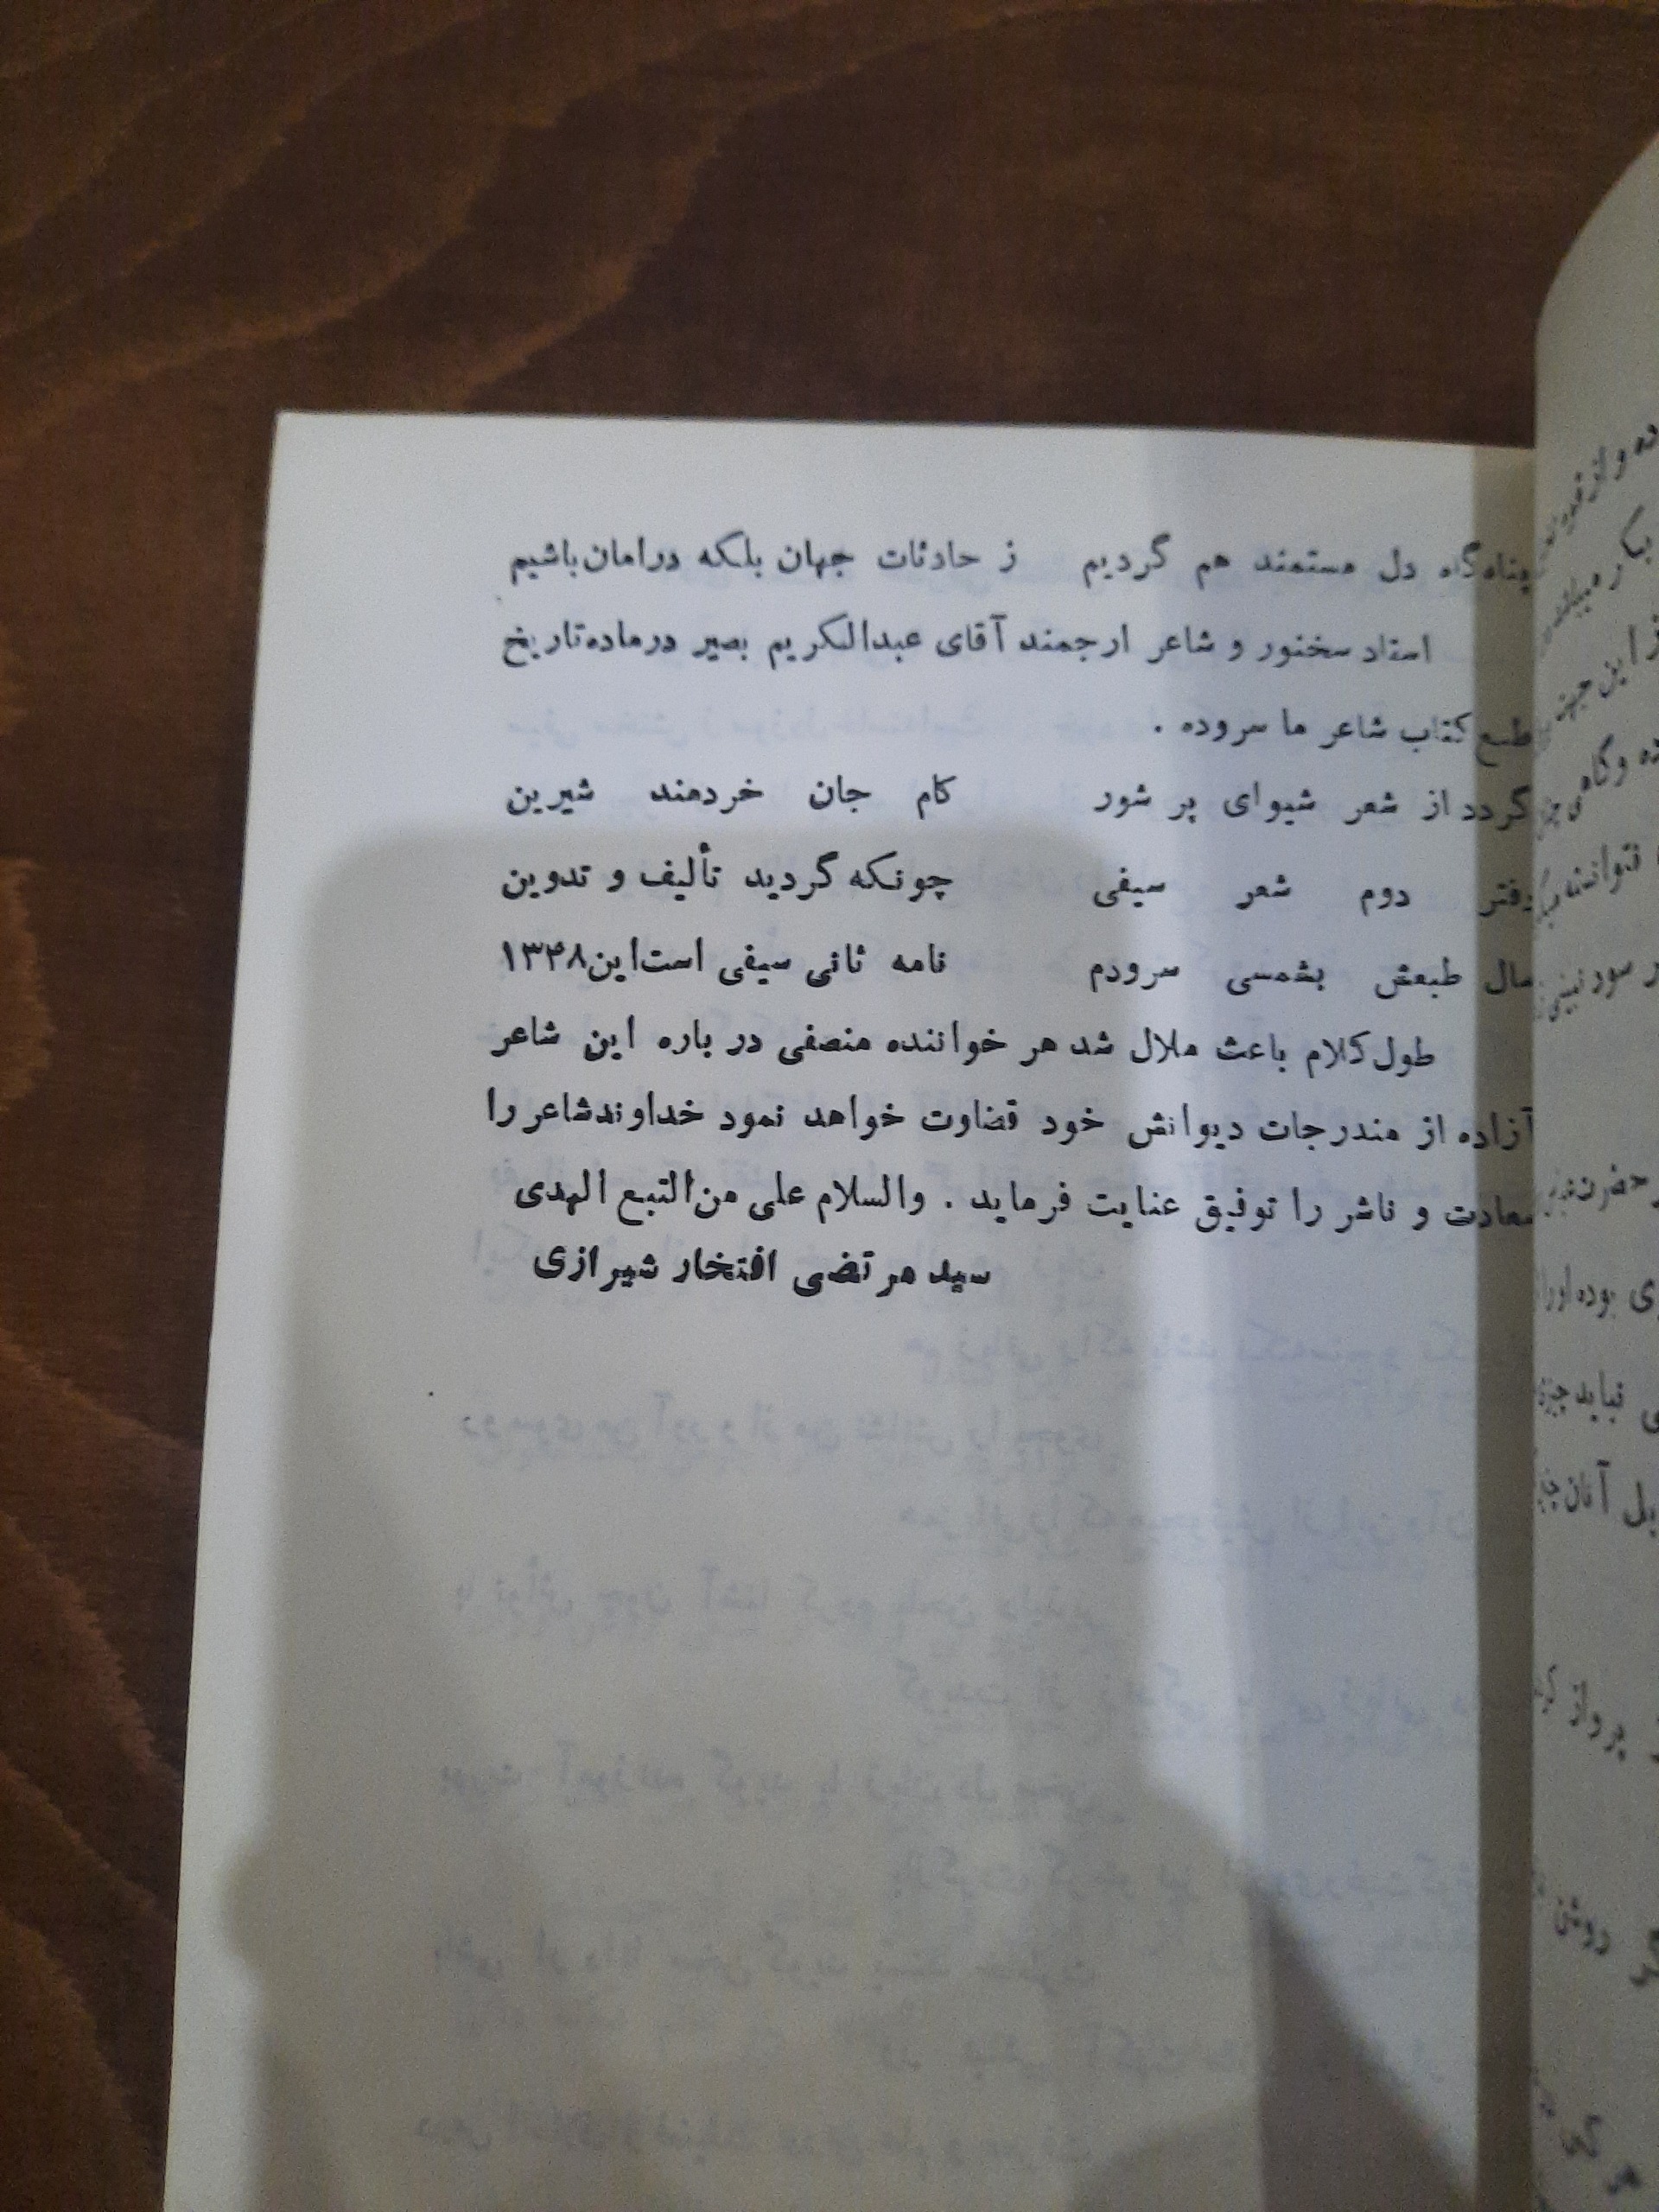 پناه‌گاه دل مستمند هم گردیم ز حادثات جهان بلکه در امان باشیم
استاد سخنور و شاعر ارجمند آقای عبدالکریم بصیر در ماده تاریخ
طبع کتاب شاعر ما سروده .
گردد از شعر شیوای پر شور کام جان خردمند شیرین
دفتر دوم شعر سیفی چونکه گردید تألیف و تدوین
سال طبعش بشمسی سرودم نامه ثانی سیفی است این ۱۳۴۸
طول کلام باعث ملال شد هر خواننده منصفی در باره این شاعر
آزاده از مندرجات دیوانش خود قضاوت خواهد نمود خداوند شاعر را
سعادت و ناشر را توفیق عنایت فرماید . والسلام علی من التبع الهدی
سید مرتضی افتخار شیرازی